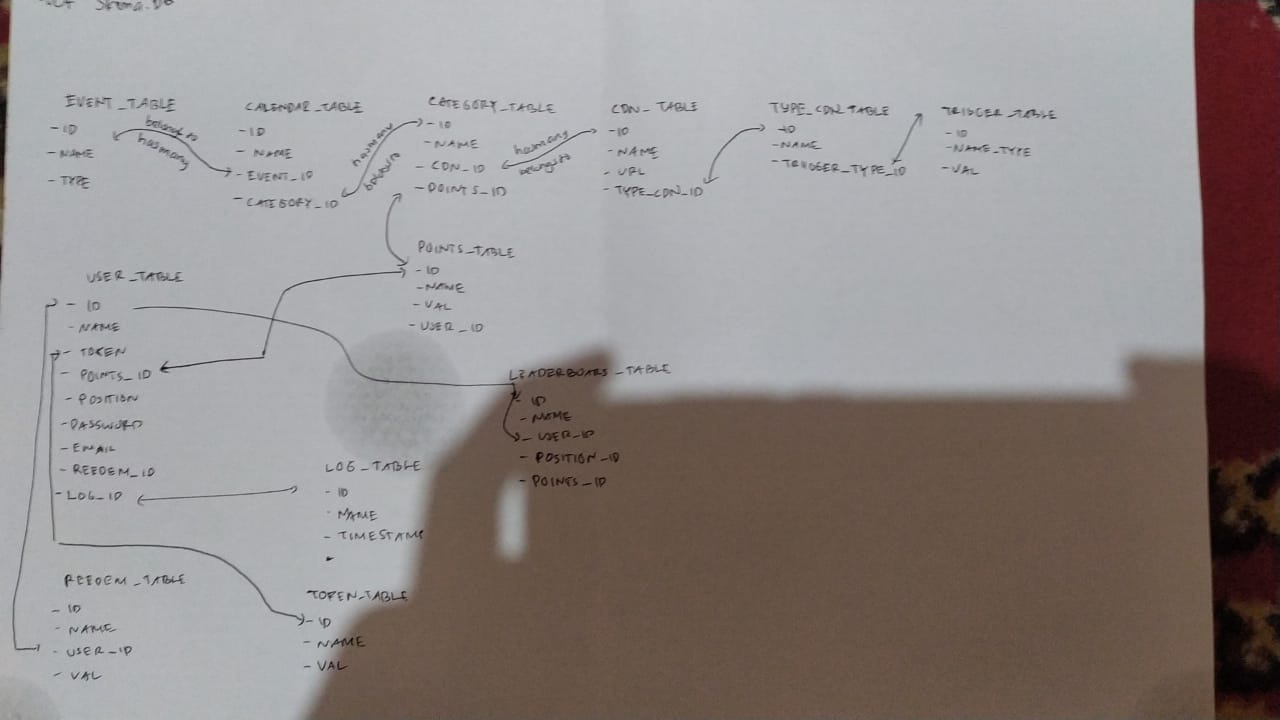 EVENT_TABLE
- ID
- NAME
- TYPE
belongs to
hasmany
CALENDAR_TABLE
- ID
- NAME
- EVENT_ID
- CATEGORY_ID
hasmany
CATEGORY_TABLE
- ID
- NAME
- CDN_ID
- POINTS_ID
hasmany
belongs to
CDN_TABLE
- ID
- NAME
- URL
- TYPE_CDN_ID
TYPE_CDN_TABLE
- ID
- NAME
- TRIGGER_TYPE_ID
TRIGGER_TABLE
- ID
- NAME_TYPE
- VAL
POINTS_TABLE
- ID
- NAME
- VAL
- USER_ID
USER_TABLE
- ID
- NAME
- TOKEN
- POINTS_ID
- POSITION
- PASSWORD
- EMAIL
- REEDEM_ID
- LOG_ID
LEADERBOARS_TABLE
- ID
- NAME
- USER_ID
- POSITION_ID
- POINTS_ID
LOG_TABLE
- ID
- NAME
- TIMESTAMP
REEDEM_TABLE
- ID
- NAME
- USER_ID
- VAL
TOKEN_TABLE
- ID
- NAME
- VAL